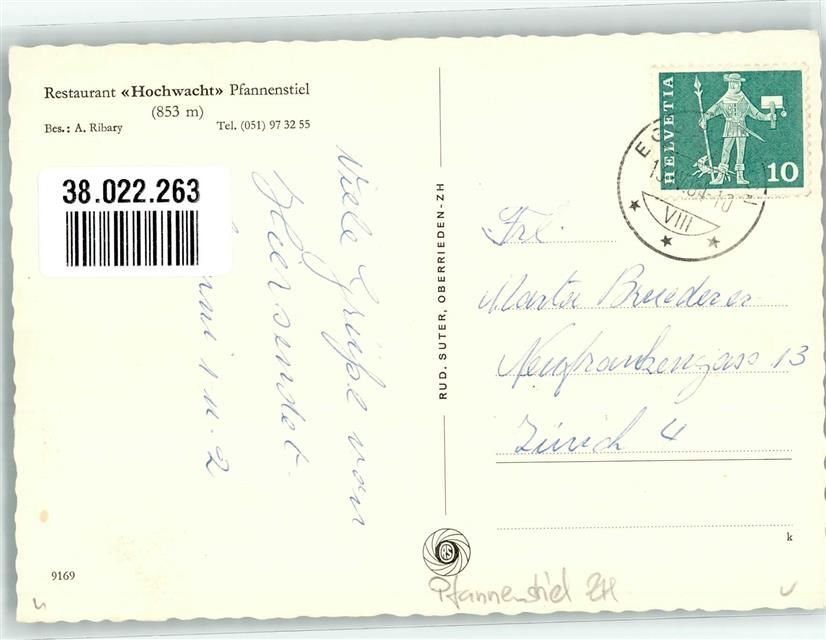 Restaurant «Hochwacht» Pfannenstiel
(853 m)
Bes.: A. Ribary Tel. (051) 97 32 55
38.022.263
Viele Grüße von
Hier sendet
1 u. 2
RUD. SUTER, OBERRIEDEN-ZH
HELVETIA
10
VIII
Frl.
Marta Bruederer
Neufrankengass 13
Zürich 4
k
9169
RS
Pfannenstiel ZH